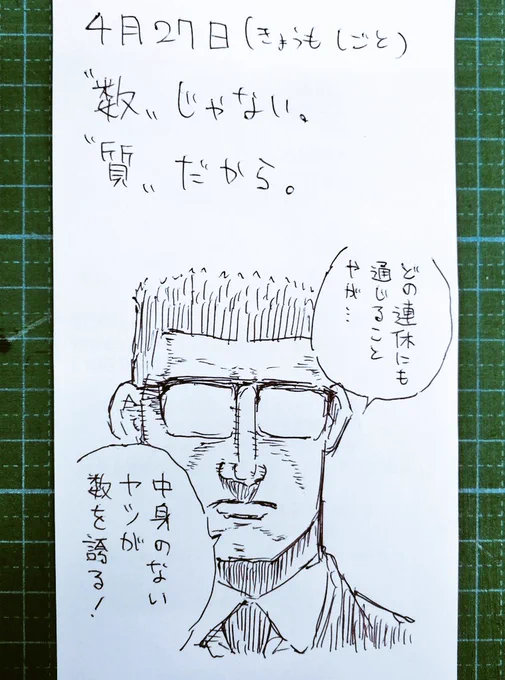 4月27日(きょうもしごと)
〝数〟じゃない。
〝質〟だから。
どの連休にも
通じること
やが…
中身のない
ヤツが
数を誇る!